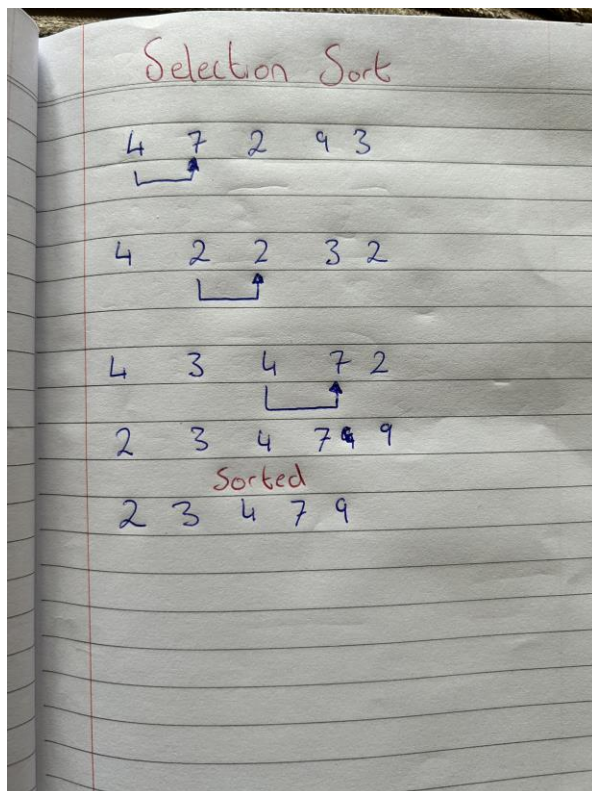 Selection Sort
4 7 2 9 3
4 2 2 3 2
4 3 4 7 2
2 3 4 7 9
Sorted
2 3 4 7 9